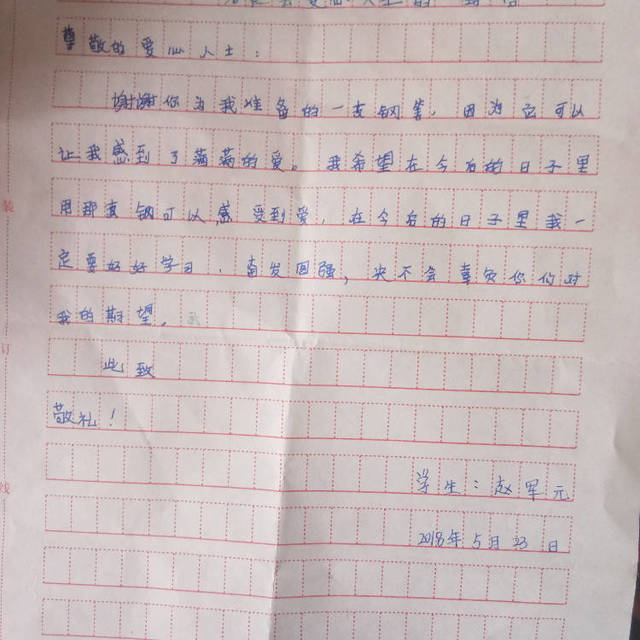 尊敬的爱心人士：
谢谢你为我准备的一支钢笔，因为它可以
让我感到了满满的爱。我希望在今后的日子里
用那支钢可以感受到爱，在今后的日子里我一
定要好好学习，奋发图强，决不会辜负你们对
我的期望。
此致
敬礼！
学生：赵军元
2018年5月23日
装
订
线